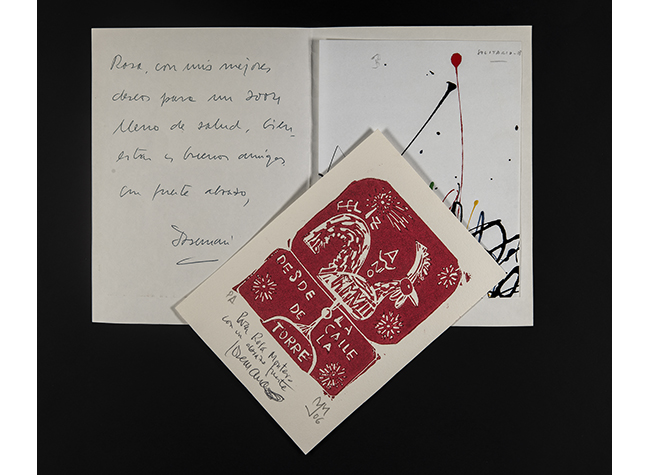 Rosa, con mis mejores
deseos para un 2004
lleno de salud, bien-
estar y buenos amigos
un fuerte abrazo,
Josemari
FELIZ
AÑO
DESDE LA
DE CALLE
TORRE LA
PA
Para Rosa Montero
con un abrazo fuerte
06